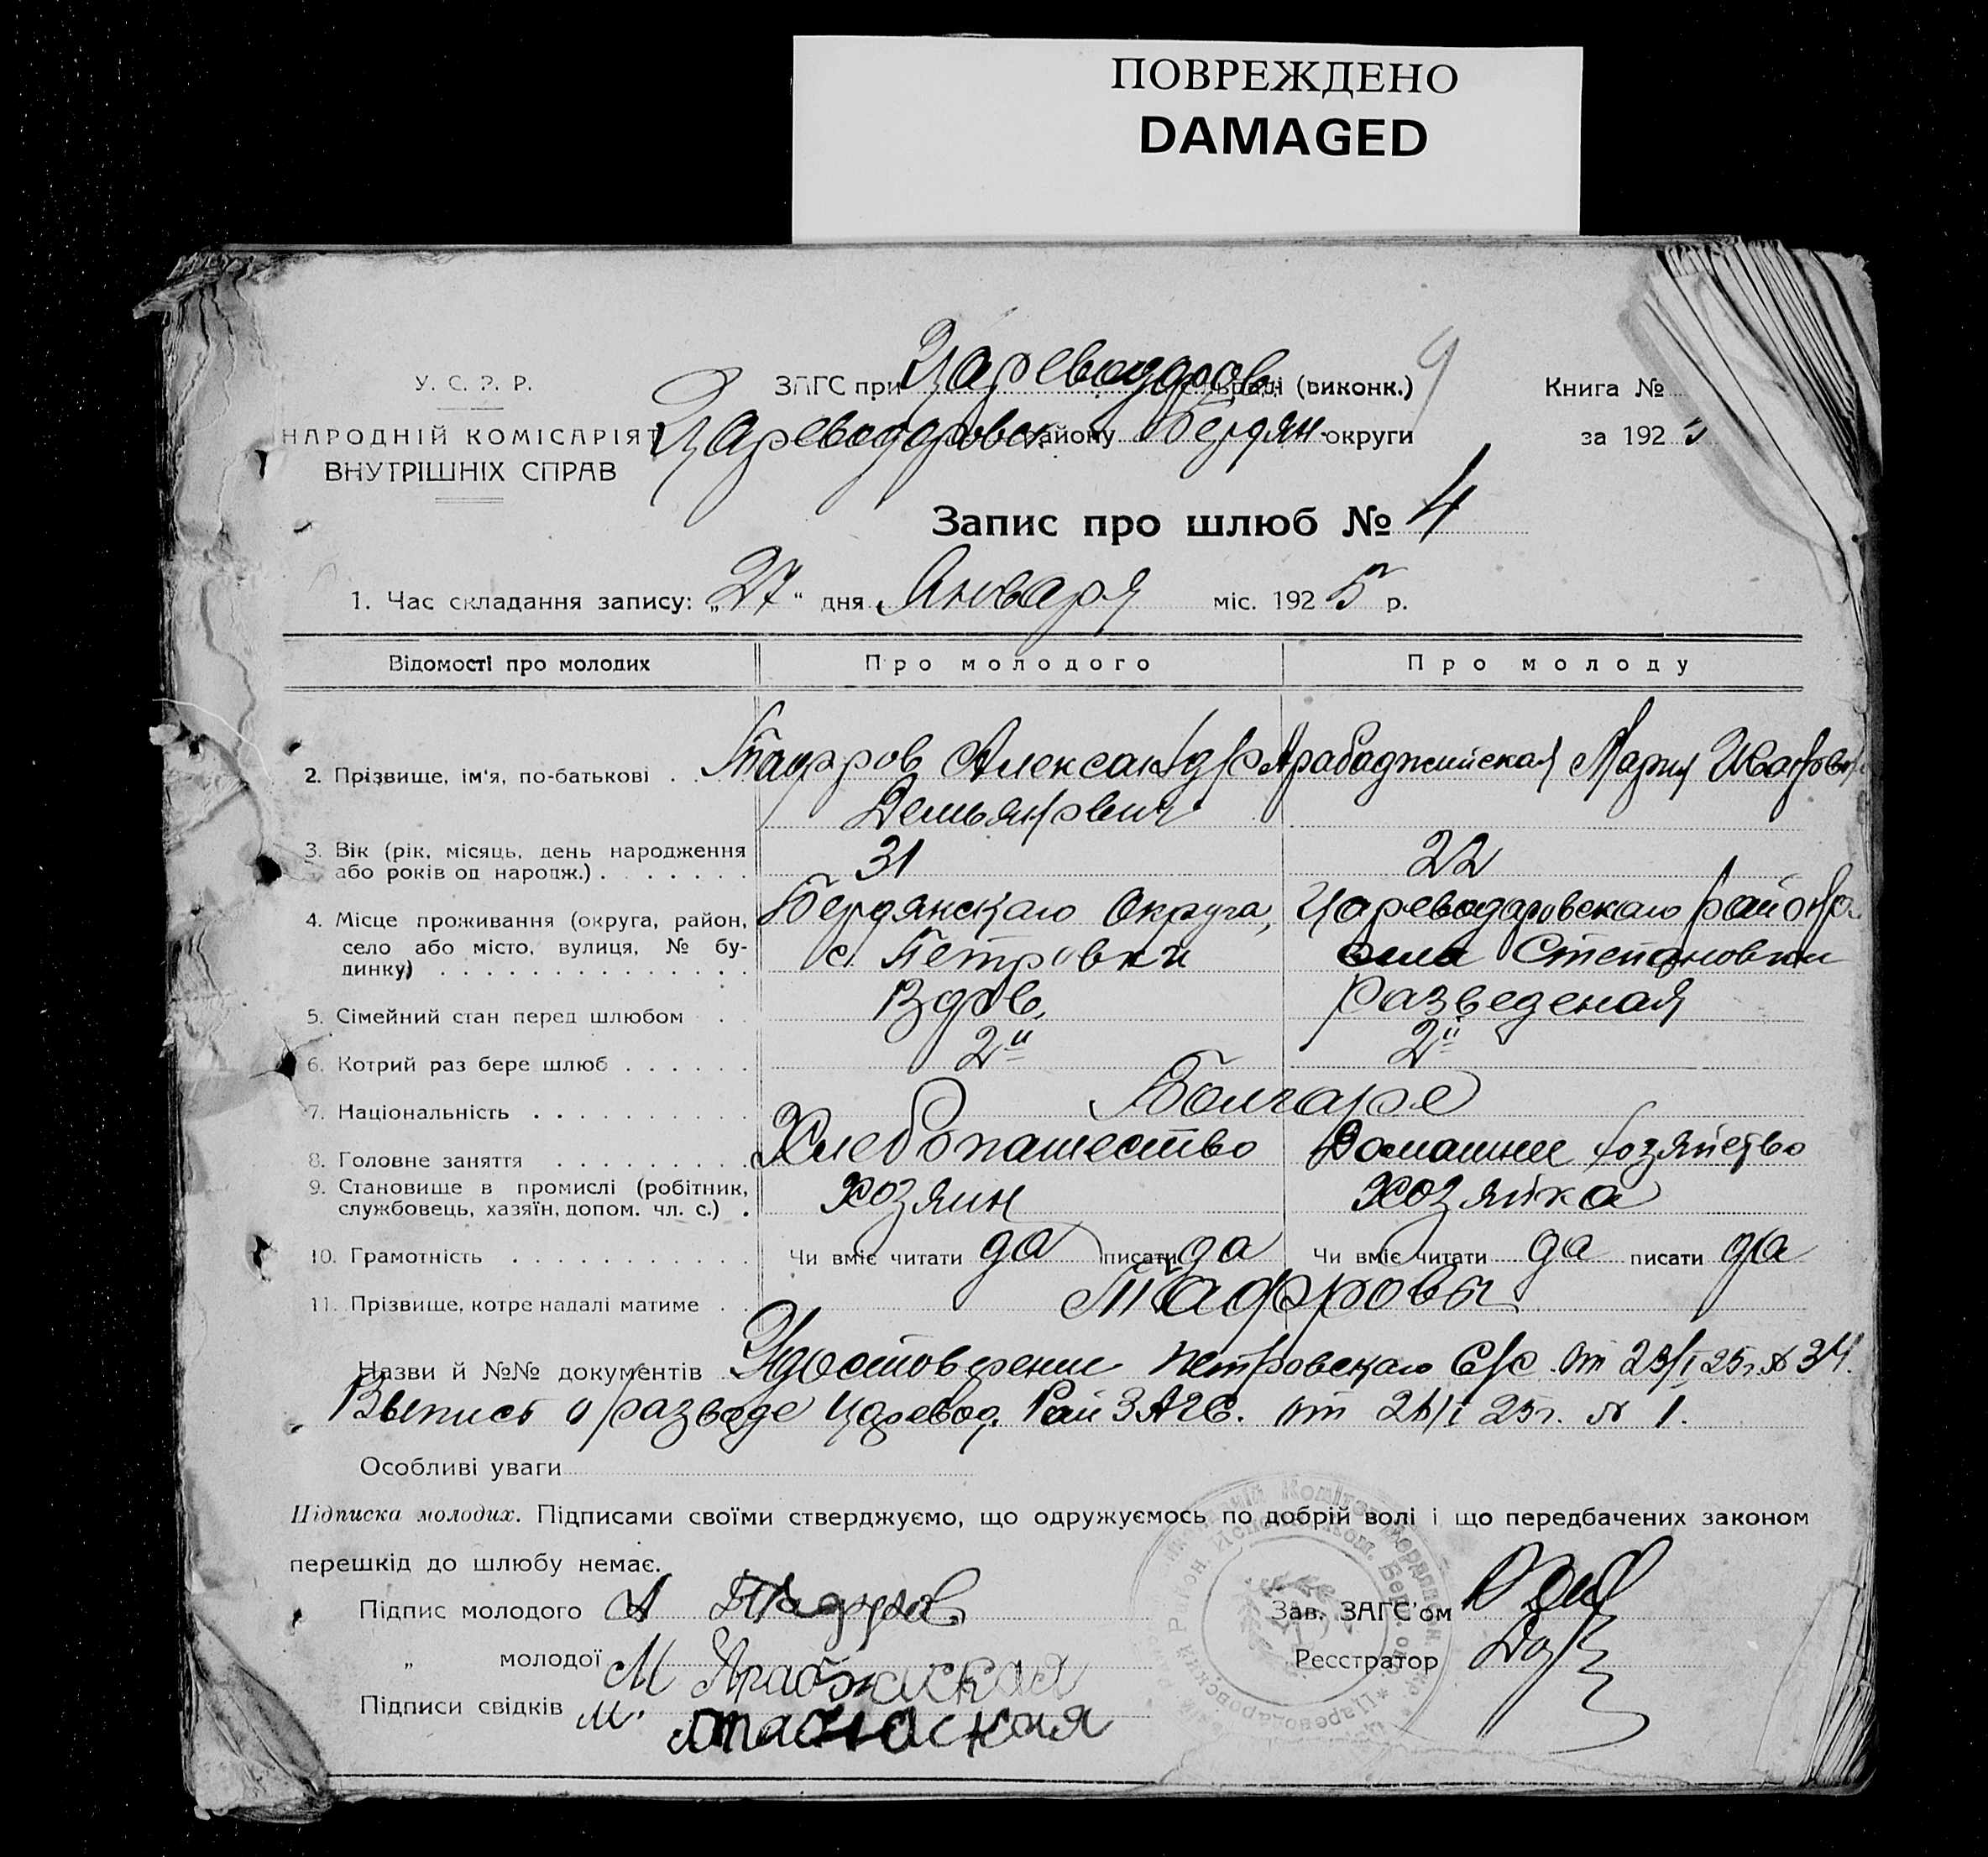 ПОВРЕЖДЕНО
DAMAGED
У. С. Р. Р.
НАРОДНІЙ КОМІСАРІЯТ
ВНУТРІШНІХ СПРАВ
ЗАГС при Цареводаров. сельраді (виконк.) 9
Цареводаровск. району Бердян. округи
Книга №
за 1925
Запис про шлюб № 4
1. Час складання запису: „27“ дня Января міс. 1925 р.
Відомості про молодих Про молодого Про молоду
2. Прізвище, ім'я, по-батькові . . Тафров Александр Арабаджийская Мария Ивановна
Демьянович
3. Вік (рік, місяць, день народження
або років од народж.) . . . . . . . 31 22
4. Місце проживання (округа, район,
село або місто, вулиця, № бу-
динку) . . . . . . . . . . . . . .
Бердянского Округа, с. Петровки
Цареводаровского района села Степановки
5. Сімейний стан перед шлюбом . . Вдов. Разведеная
6. Котрий раз бере шлюб . . . . . . 2й 2й
7. Національність . . . . . . . . . . Болгаре
8. Головне заняття . . . . . . . . . Хлебопашество Домашнее хозяйство
9. Становище в промислі (робітник,
службовець, хазяїн, допом. чл. с.) . Хозяин Хозяйка
10. Грамотність . . . . . . . . . . . Чи вміє читати да писати да Чи вміє читати да писати да
11. Прізвище, котре надалі матиме . . Тафровы
Назви й №№ документів Удостоверение Петровского С/С от 23/I 25 г. № 34.
Выпись о разводе Царевод. Рай ЗАГС. от 26/I 25 г. № 1.
Особливі уваги
Підписка молодих. Підписами своїми стверджуємо, що одружуємось по добрій волі і що передбачених законом
перешкід до шлюбу немає.
Підпис молодого А Тафров
„ молодої М Арабжиская
Підписи свідків М.
Зав. ЗАГС'ом
Реєстратор